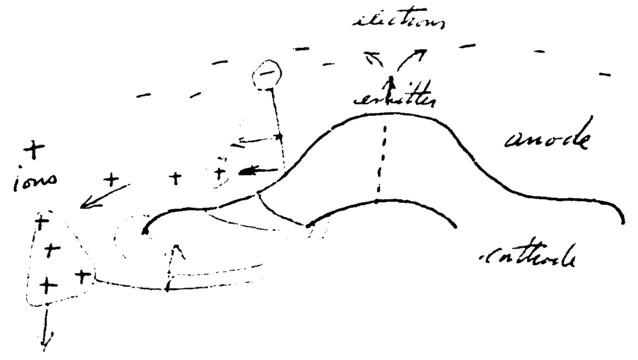 electrons
emitter
anode
ions
cathode